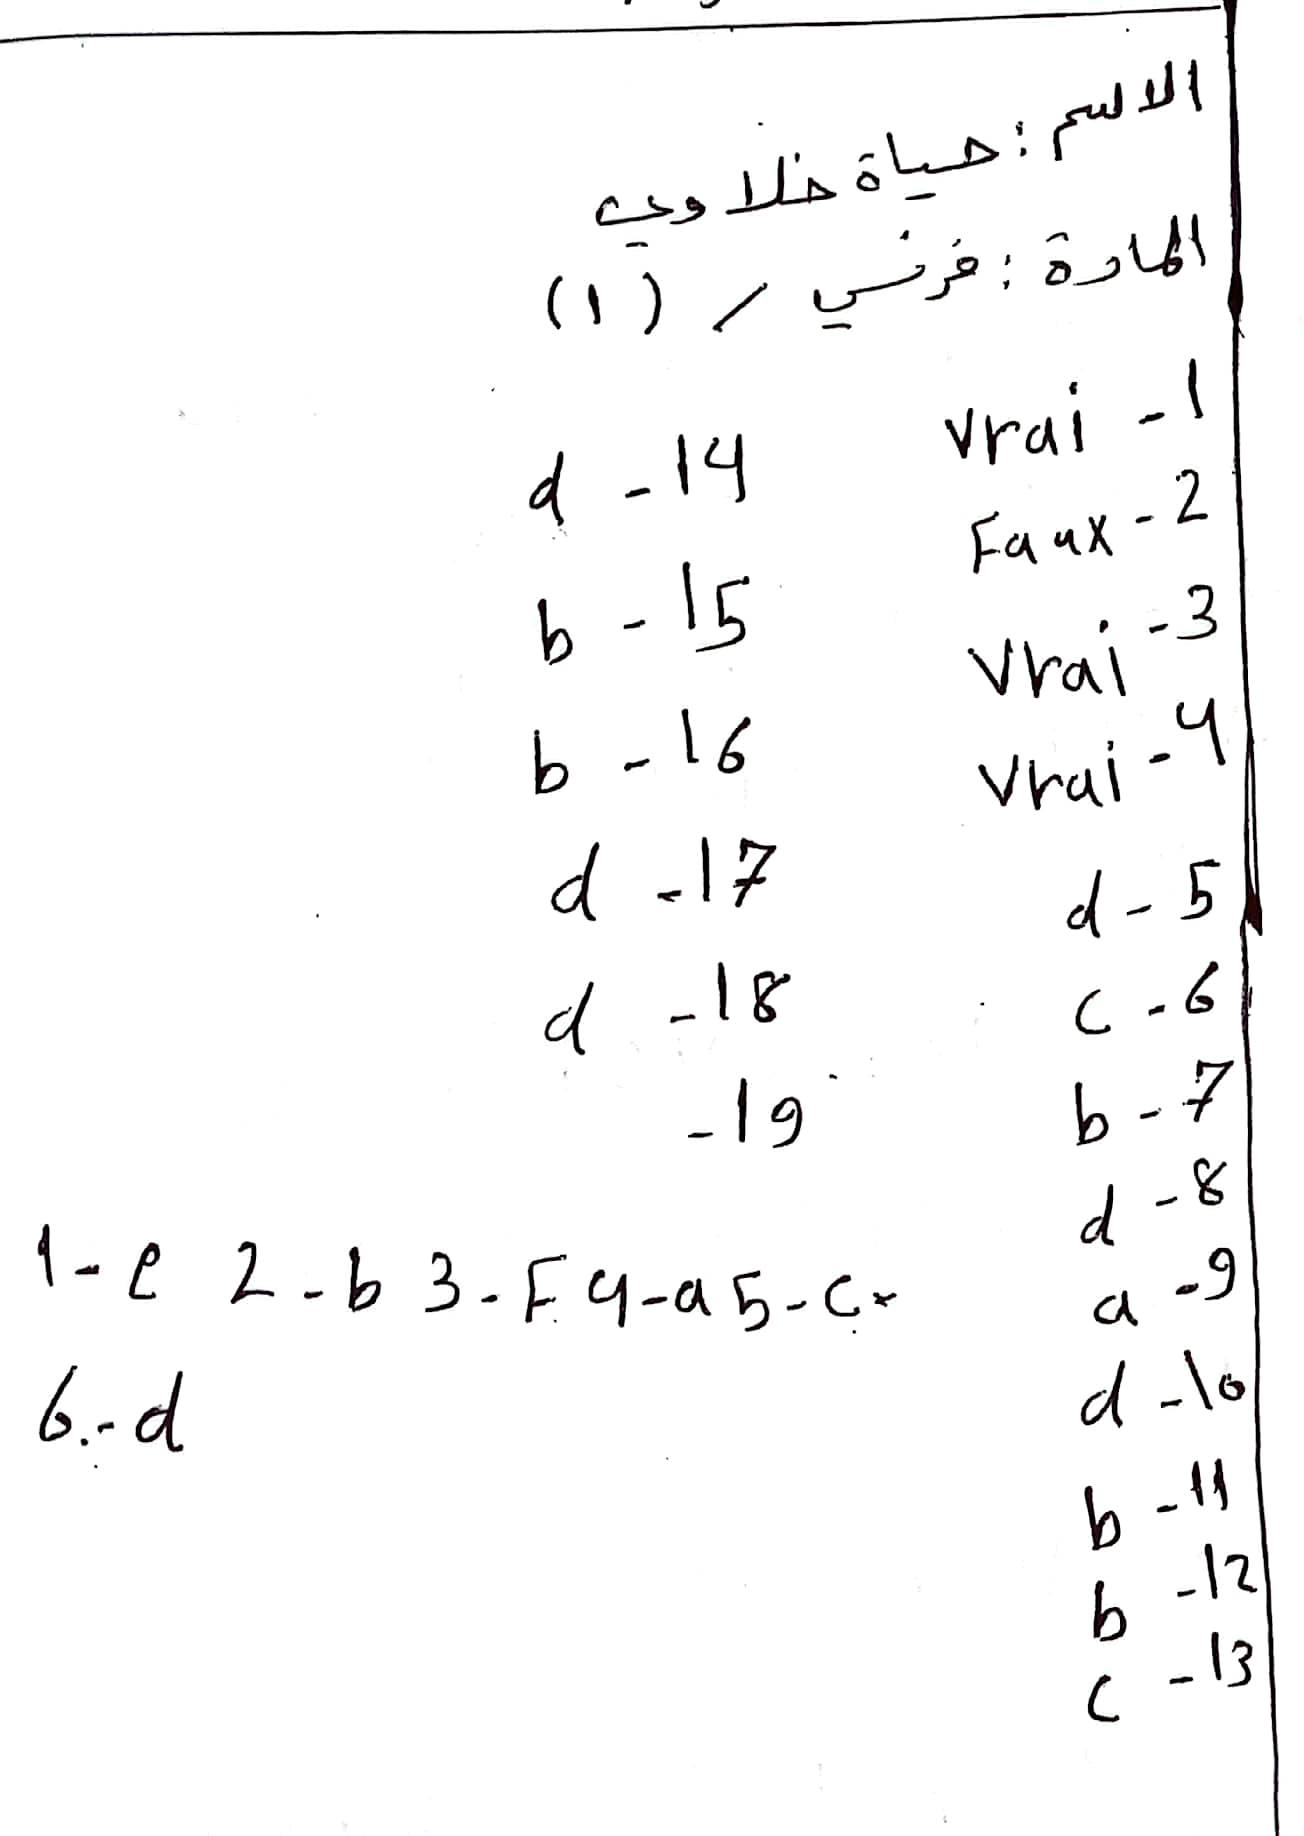 الاسم : حياة حلاوي
المادة : فرنسي / (١)
1- Vrai
2- Faux
3- Vrai
4- Vrai
5- d
6- c
7- b
8- d
9- a
10- d
11- b
12- b
13- c
14- d
15- b
16- b
17- d
18- d
19-
1-e 2-b 3-F 4-a 5-c
6-d